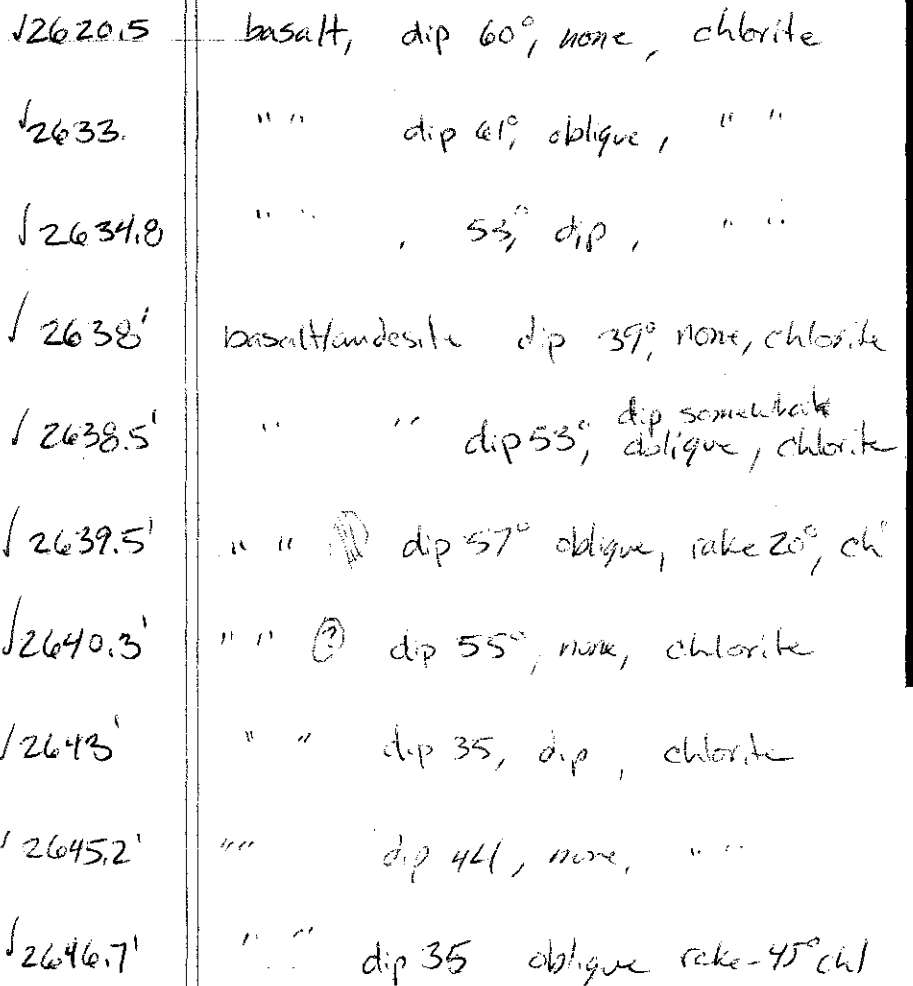 √2620.5 basalt, dip 60°, none, chlorite
√2633. " " dip 61°, oblique, " "
√2634.8 " " , 53°, dip, " "
√2638' basalt/andesite dip 39°, none, chlorite
√2638.5' " " dip 53°, dip somewhat oblique, chlorite
√2639.5' " " dip 57° oblique, rake 20°, ch
√2640.3' " " ? dip 55°, none, chlorite
√2643' " " dip 35, dip, chlorite
√2645.2' " " dip 44, none, " "
√2646.7' " " dip 35 oblique rake-45° chl